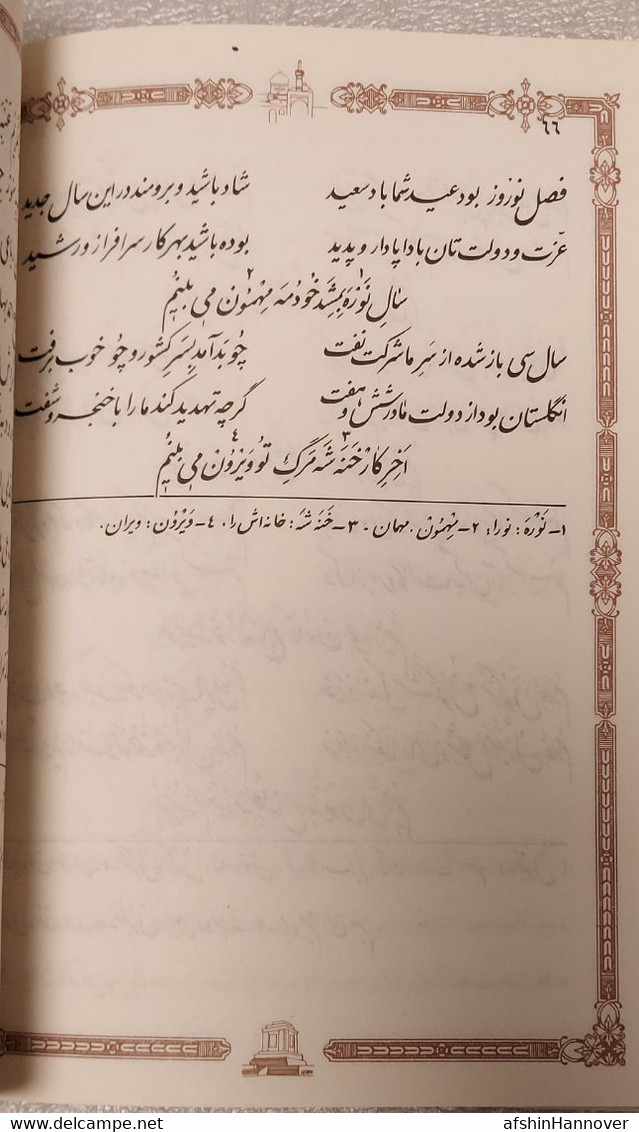 ٦٦
فصل نوروز بود عید شما باد سعید شاد باشید و برومند در این سال جدید
عزّت و دولت تان بادا پادار و پدید بوده باشید بهر کار سرافراز و رشید
سالِ نَوْرَه١ بِشِدْ خُودْ مَه مِهْمُون٢ مِیْ بِلِنُمْ
سال سی باز شده از سَرِ ما شرکت نفت چو بَد آمد بِسَرِ کشور و چُو خوب برفت
انگلستان بود از دولت ما در شش و هفت گرچه تهدید کند ما را با خنجر و شفت
اَخِرِ کارْ خَنَه شَه٣ مَرگِ تُو وَیْرُون٤ مِیْ بِلِنُمْ
١- نَوْرَه: نورا: ٢- مِهْمُوْن. مهمان. ٣- خَنَه شَه: خانه اش را. ٤- وَیْرُوْن: ویران.
www.delcampe.net afshinHannover